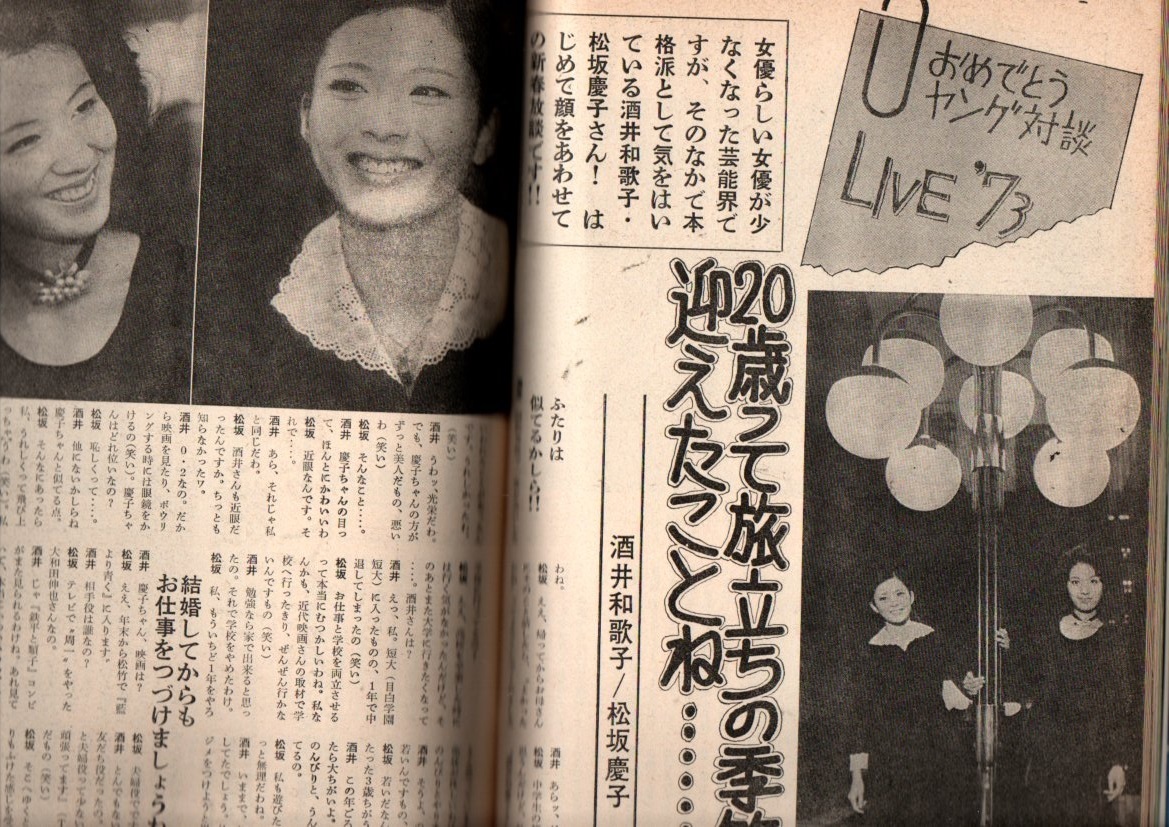 おめでとう
ヤング対談
LIVE '73
女優らしい女優が少
なくなった芸能界で
すが、そのなかで本
格派として気をはい
ている酒井和歌子・
松坂慶子さん! は
じめて顔をあわせて
の新春放談です!!
20歳って旅立ちの季節
迎えたことね……
酒井和歌子/松坂慶子
ふたりは
似てるかしら!!
酒井 うわッ、光栄だわ。
でも、慶子ちゃんの方が
ずっと美人だもの、悪い
わ(笑い)
松坂 そんなこと……。
酒井 慶子ちゃんの目っ
て、ほんとにかわいいわ
松坂 近眼なんです。そ
れで……。
酒井 あら、それじゃ私
と同じだわ。
松坂 酒井さんも近眼だ
ったんですか。ちっとも
知らなかったワ。
酒井 0・2なの。だか
ら映画を見たり、ボウリ
ングする時には眼鏡をか
けるの(笑い)。慶子ちゃ
んはどれ位いなの?
松坂 恥しくって……。
酒井 他にないかしらね
慶子ちゃんと似てる点。
松坂 そんなにあったら
私、うれしくって飛び上
っちゃうわ(笑い)。私
わね。
松坂 ええ、帰ってからお母さん
のあとまた大学に行きたくなって
……。酒井さんは?
酒井 えっ、私。短大(目白学園
短大)に入ったものの、1年で中
退してしまったの(笑い)
松坂 お仕事と学校を両立させる
って本当にむつかしいわね。私な
んかも、近代映画さんの取材で学
校へ行ったきり、ぜんぜん行かな
いんですもの(笑い)
酒井 勉強なら家で出来ると思っ
たの。それで学校をやめたわけ。
松坂 私、もういちど1年をやろ
結婚してからも
お仕事をつづけましょうね
酒井 慶子ちゃん、映画は?
松坂 ええ、年末から松竹で『藍
より青く』に入ります。
酒井 相手役は誰なの?
松坂 テレビで〝周一〟をやった
大和田伸也さんなの。
酒井 じゃ『鉄平と順子』コンビ
がまた見られるわけね。あれ見て
酒井 あらッ、
松坂 中学生の
酒井 そうよ、
若いんですもの、
松坂 若いだなん
たった3歳ちがう
酒井 この年ごろ
たら大ちがいよ。
のんびりと、うん
てるの。
松坂 私も遊びた
っと無理だわね。
酒井 いままで、
してたでしょう。
ジメをつけようと
松坂 夫婦役です
酒井 とんでもない
友だち役だったの。
と夫婦役って少ない
頑張ってます』(T
だもの(笑い)
松坂 そこへゆくと
りもふけた感じを